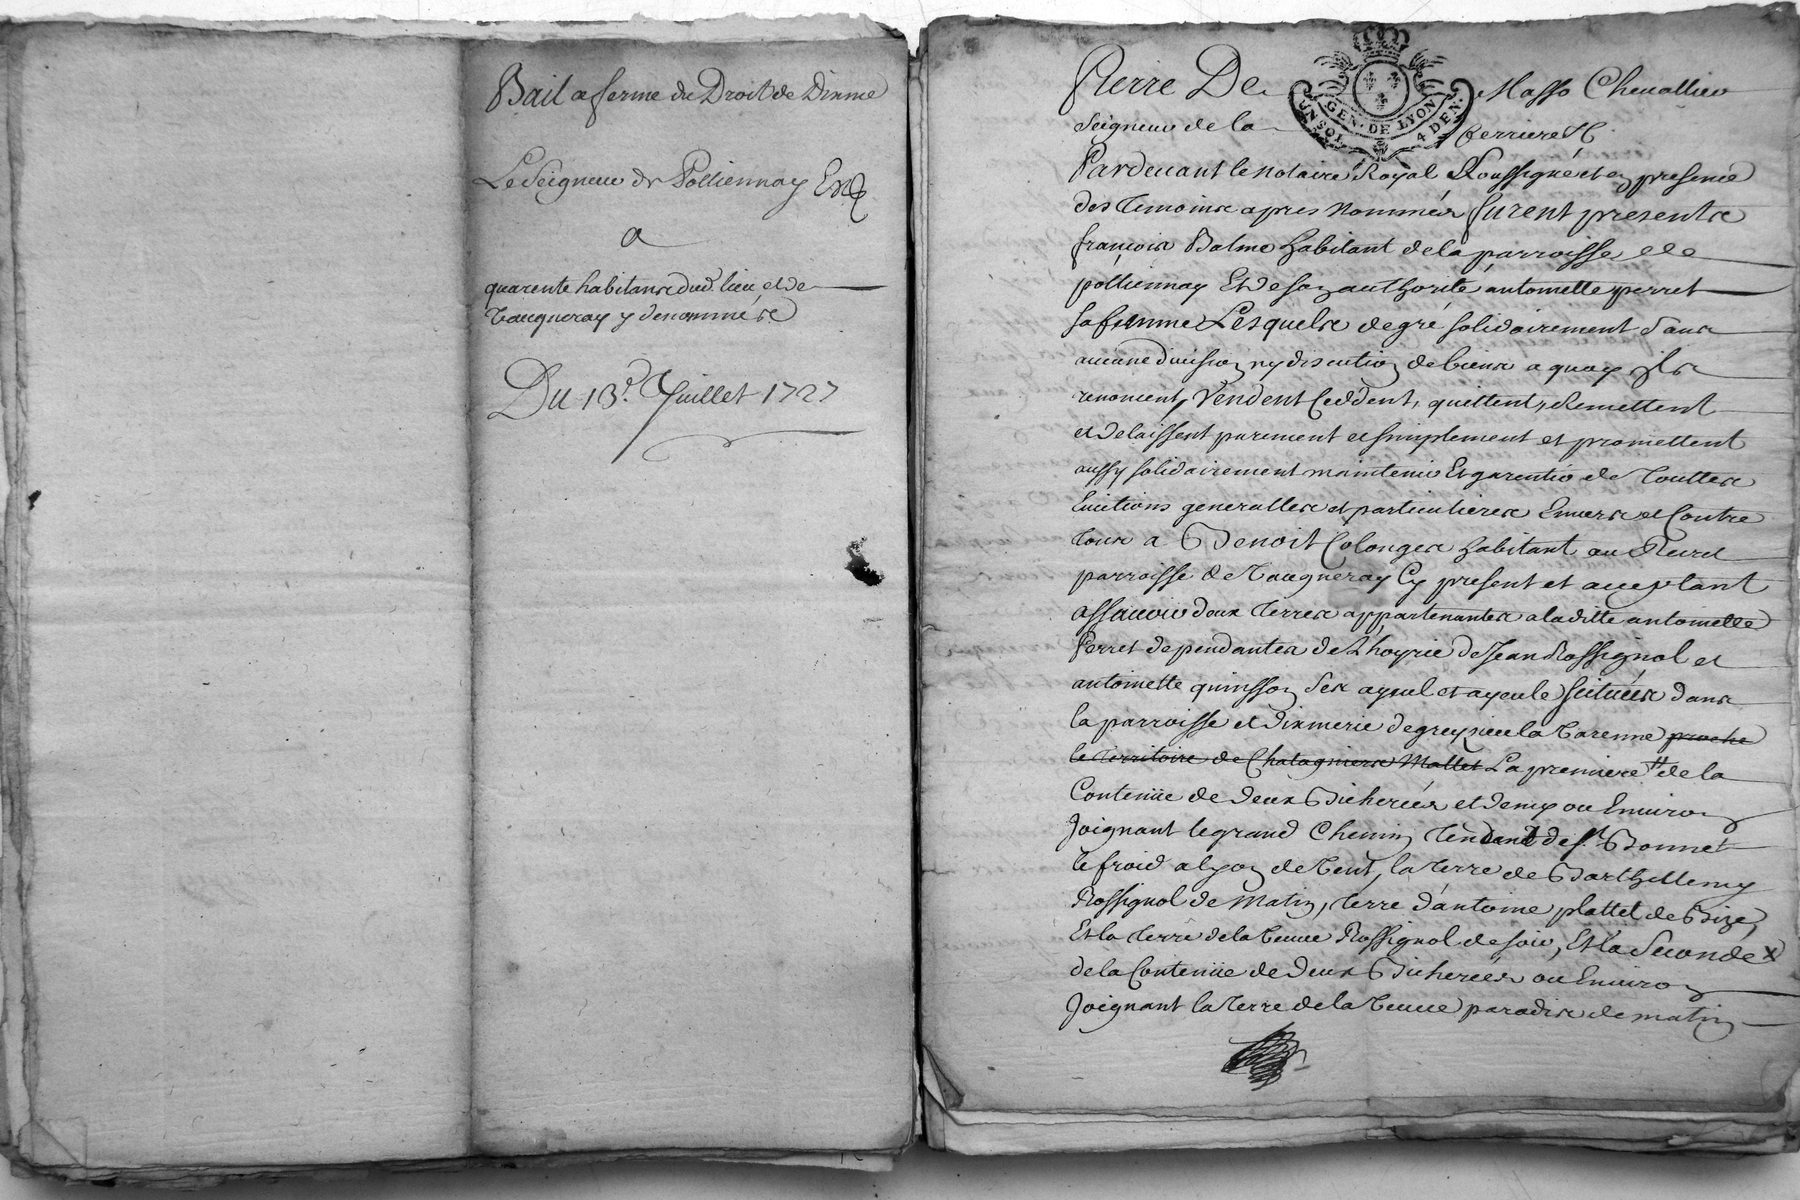 Bail a ferme du Droit de Dixme
Le Seigneur de Polliennay
a
quarente habitans dud. lieu et de
Vaugneray y denommés
Du 13e. Juillet 1727
Pierre De Masso Chevallier
Seigneur de la ferriere &c.
GEN. DE LYON
UN SOL 4 DEN.
Pardevant le notaire Royal Soussigné et en presence
des temoins apres nommés furent presents
françois Balme habitant de la parroisse de
polliennay Et de son authorité antoinette perret
sa femme Lesquels de gré solidairement sans
aucune division ny discution de biens a quoy ils
renoncent, Vendent Ceddent, quittent, Remettent
et delaissent purement et simplement et promettent
aussy solidairement maintenir Et garentir de touttes
Evictions generalles et particulieres Envers et Contre
tous a Benoit Colonges habitant au Recret
parroisse de Vaugneray Cy present et acceptant
assavoir deux terres appartenantes a laditte antoinette
Perret dependantes de L'hoyrie de Jean Rossignol et
antoinette quinsson ses ayeul et ayeule scituées dans
la parroisse et dixmerie de greyzieu la Varenne proche
le territoire de Chatagniers Mallet La premiere de la
Contenüe de deux Bicherées et demy ou Environ
Joignant le grand Chemin tendant de st. Bonnet
le froid a lyon de Vent, la terre de Barthellemy
Rossignol de matin, terre d'antoine plattet de Bize,
Et la terre de la Veuve Rossignol de soir, Et la Seconde
de la Contenüe de deux Bicherées ou Environ
Joignant la terre de la Veuve paradis de matin